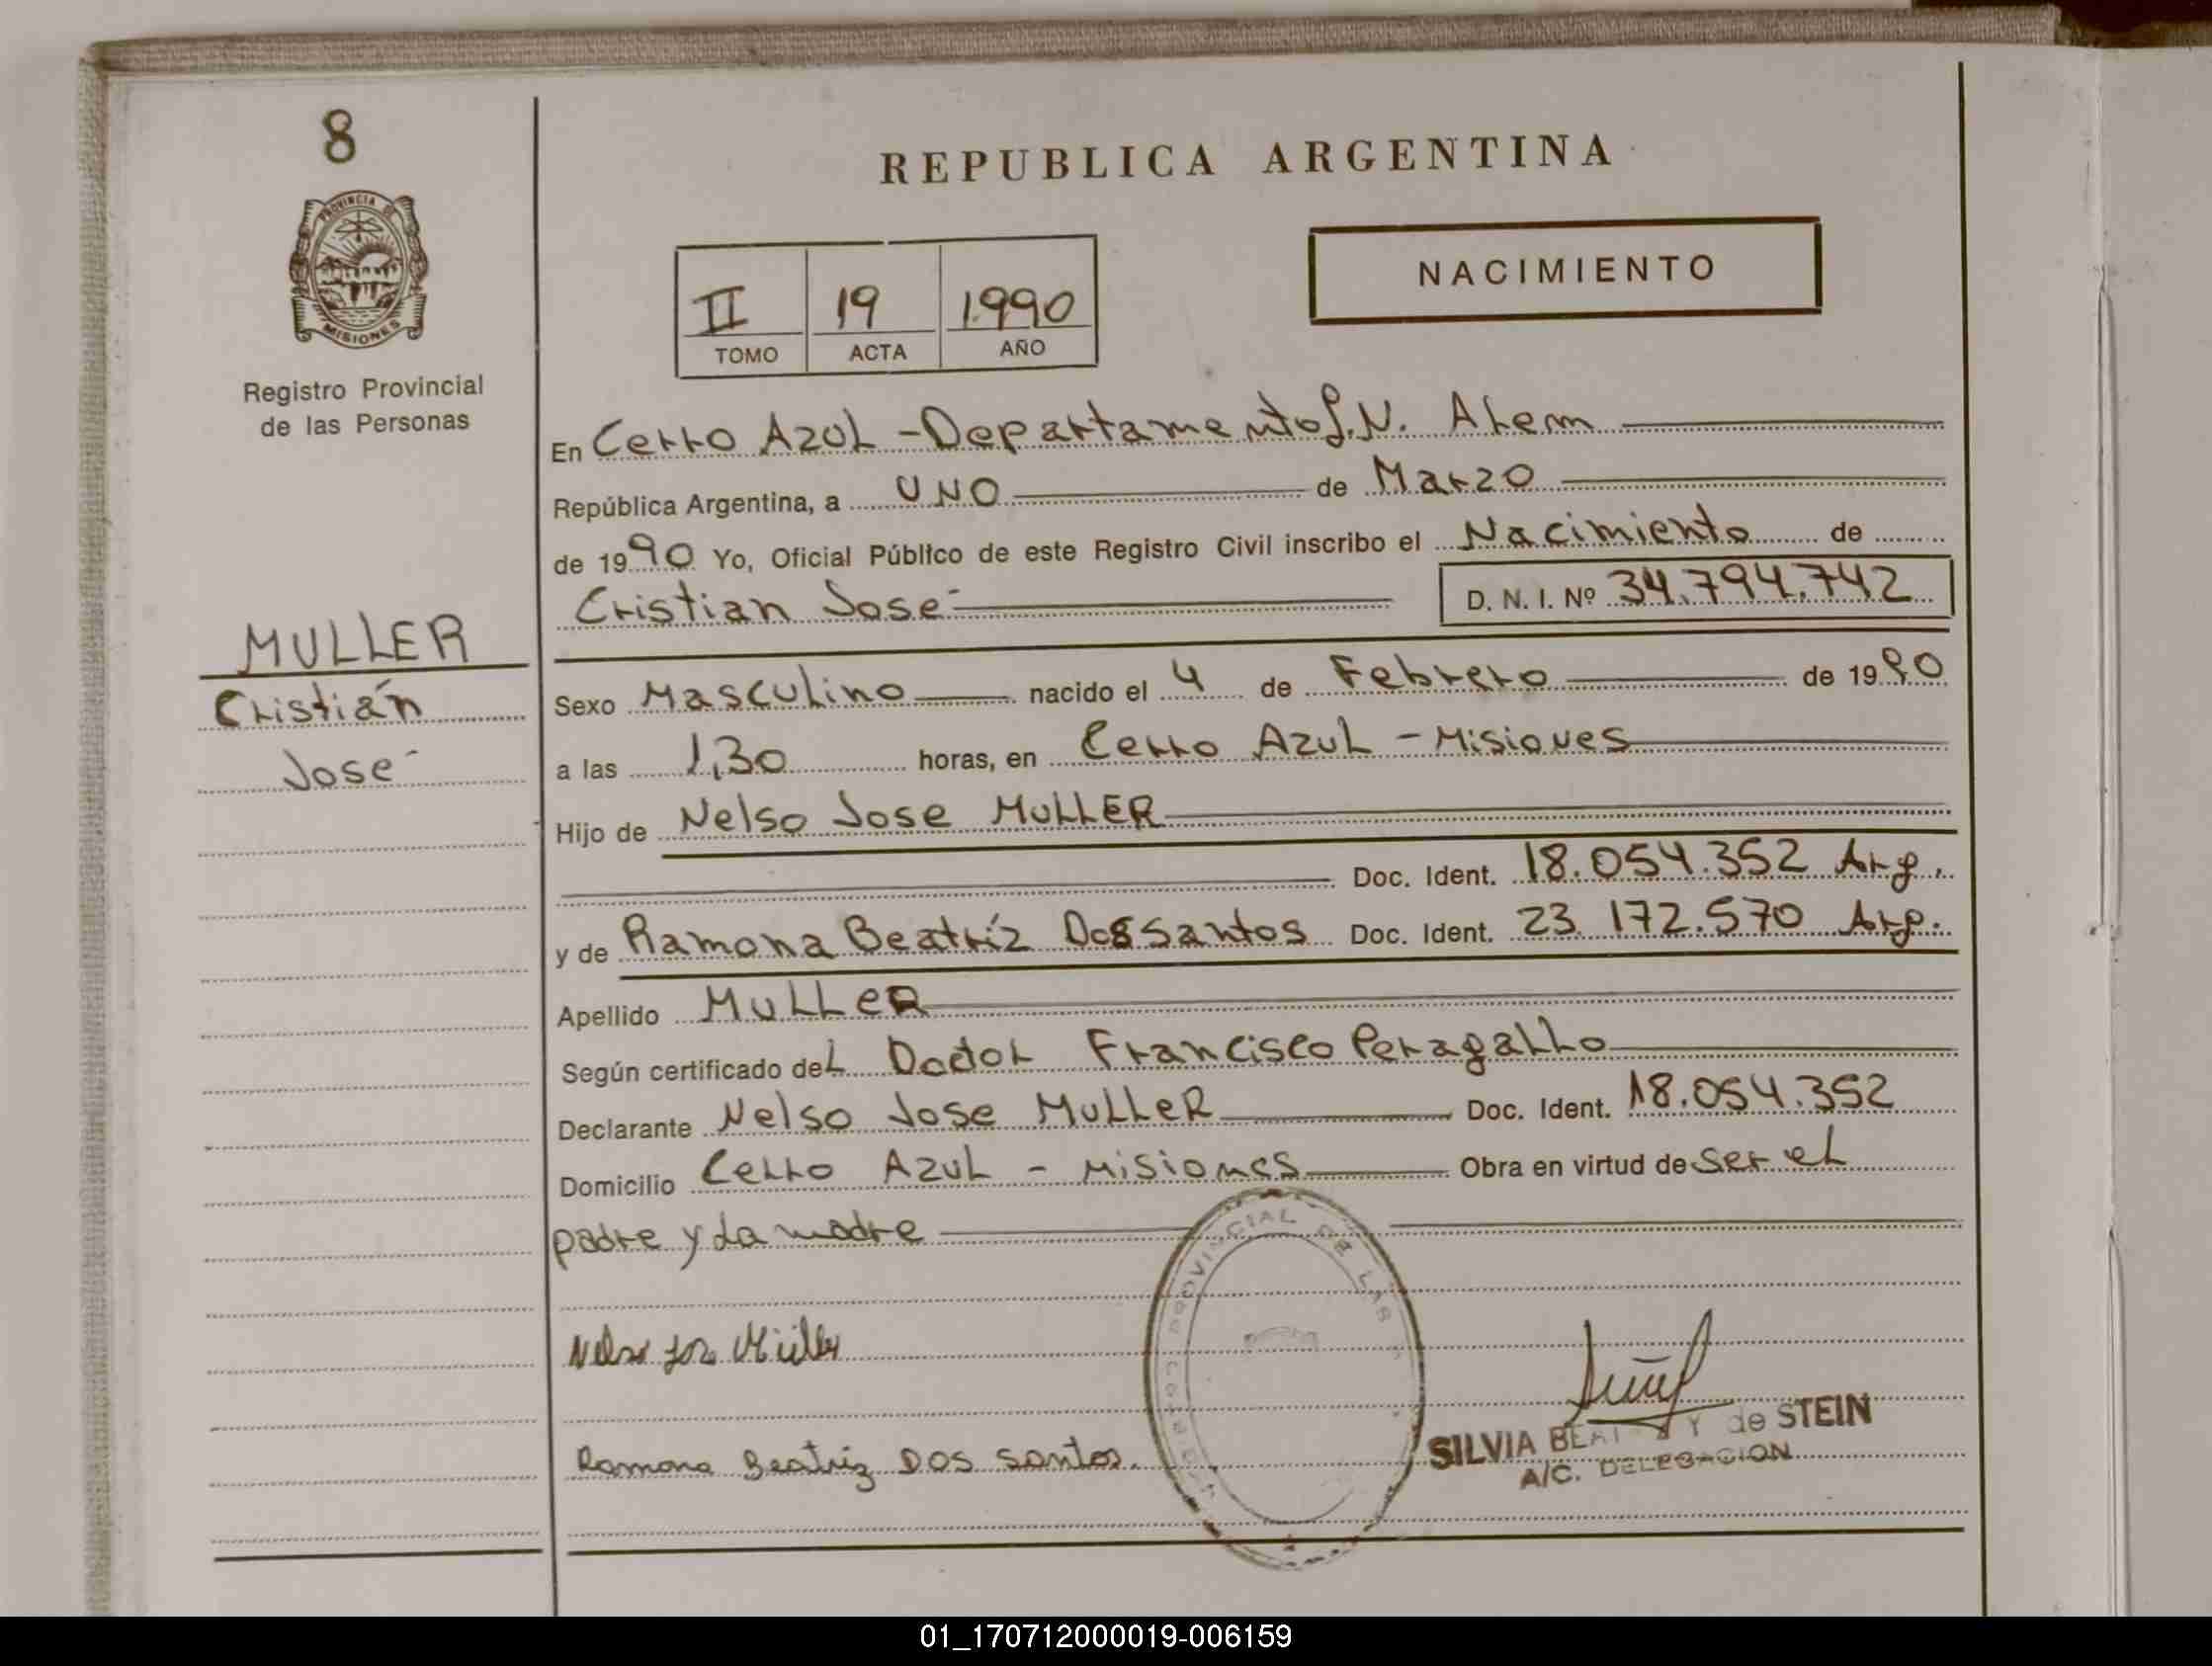 8
PROVINCIA DE
MISIONES
Registro Provincial
de las Personas
MULLER
Cristián
José
REPUBLICA ARGENTINA
II 19 1.990
TOMO ACTA AÑO
NACIMIENTO
En Cerro Azul - Departamento L.N. Alem
República Argentina, a UNO de Marzo
de 1990 Yo, Oficial Público de este Registro Civil inscribo el Nacimiento de
Cristian José D. N. I. Nº 34.794.742
Sexo Masculino nacido el 4 de Febrero de 1990
a las 1,30 horas, en Cerro Azul - Misiones
Hijo de Nelso Jose MULLER
Doc. Ident. 18.054.352 Arg.
y de Ramona Beatríz Dos Santos Doc. Ident. 23.172.570 Arg.
Apellido MULLER
Según certificado del Doctor Francisco Peragallo
Declarante Nelso Jose MULLER Doc. Ident. 18.054.352
Domicilio Cerro Azul - Misiones Obra en virtud de ser el
padre y la madre
Nelso Jose Müller
Ramona Beatriz Dos Santos.
PROVINCIAL DE LAS
SILVIA Y de STEIN
A/C. DELEGACION
01_170712000019-006159